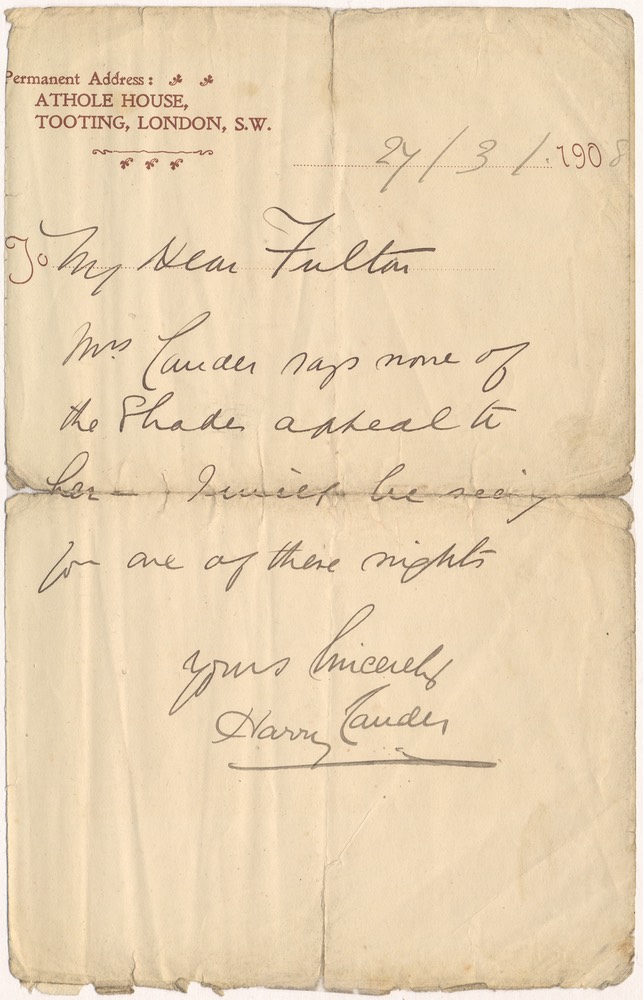 Permanent Address:
ATHOLE HOUSE,
TOOTING, LONDON, S.W.
27/3/.1908
To My Dear Fulton
Mrs Lauder says none of
the Shades appeal to
her - I will be seeing
you one of these nights
yours Sincerely
Harry Lauder